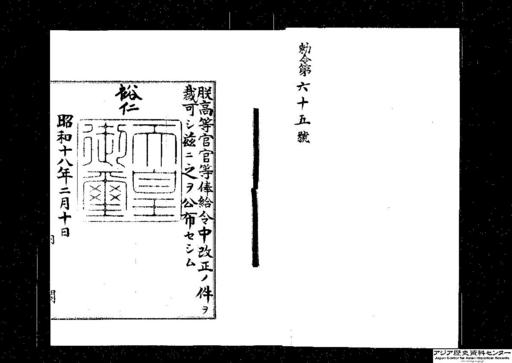 勅令第六十五號
朕高等官官等俸給令中改正ノ件ヲ
裁可シ茲ニ之ヲ公布セシム
裕仁
天皇
御璽
昭和十八年二月十日
アジア歴史資料センター
Japan Center for Asian Historical Records